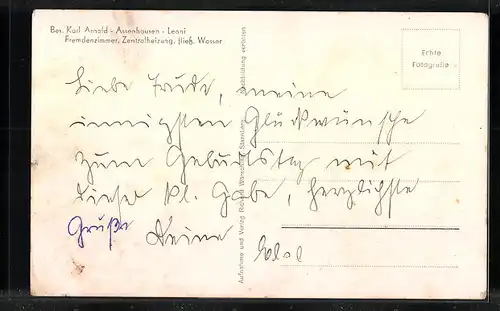 Bes. Karl Arnold - Assenhausen - Leoni
Fremdenzimmer, Zentralheizung, fließ. Wasser
Echte
Fotografie
Liebe Trude, meine
innigsten Glückwünsche
zum Geburtstag mit
dieser kl. Gabe, herzlichste
Grüße Deine
Aufnahme und Verlag Richard
Nachbildung verboten